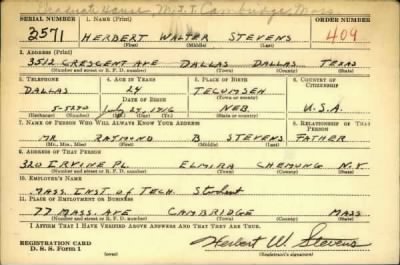 Graduate House, M.I.T. Cambridge, Mass
SERIAL NUMBER 1. NAME (Print) ORDER NUMBER
2571 HERBERT WALTER STEVENS 409
(First) (Middle) (Last)
2. ADDRESS (Print)
3512 CRESCENT AVE DALLAS DALLAS TEXAS
(Number and street or R. F. D. number) (Town) (County) (State)
3. TELEPHONE 4. AGE IN YEARS 5. PLACE OF BIRTH 6. COUNTRY OF CITIZENSHIP
DALLAS 24 TECUMSEH
DATE OF BIRTH
5-5290 July 24, 1916 NEB. U.S.A.
(Mo.) (Day) (Yr.)
7. NAME OF PERSON WHO WILL ALWAYS KNOW YOUR ADDRESS 8. RELATIONSHIP OF THAT PERSON
MR RAYMOND B STEVENS FATHER
(Mr., Mrs., Miss) (First) (Middle) (Last)
9. ADDRESS OF THAT PERSON
320 IRVINE PL ELMIRA CHEMUNG N.Y
(Number and street or R. F. D. number) (Town) (County) (State)
10. EMPLOYER'S NAME
MASS. INST. of TECH. Student
11. PLACE OF EMPLOYMENT OR BUSINESS
77 MASS. AVE CAMBRIDGE MASS
(Number and street or R. F. D. number) (Town) (County) (State)
I AFFIRM THAT I HAVE VERIFIED ABOVE ANSWERS AND THAT THEY ARE TRUE.
REGISTRATION CARD
D. S. S. Form 1 (over) Herbert W. Stevens
(Registrant's signature)